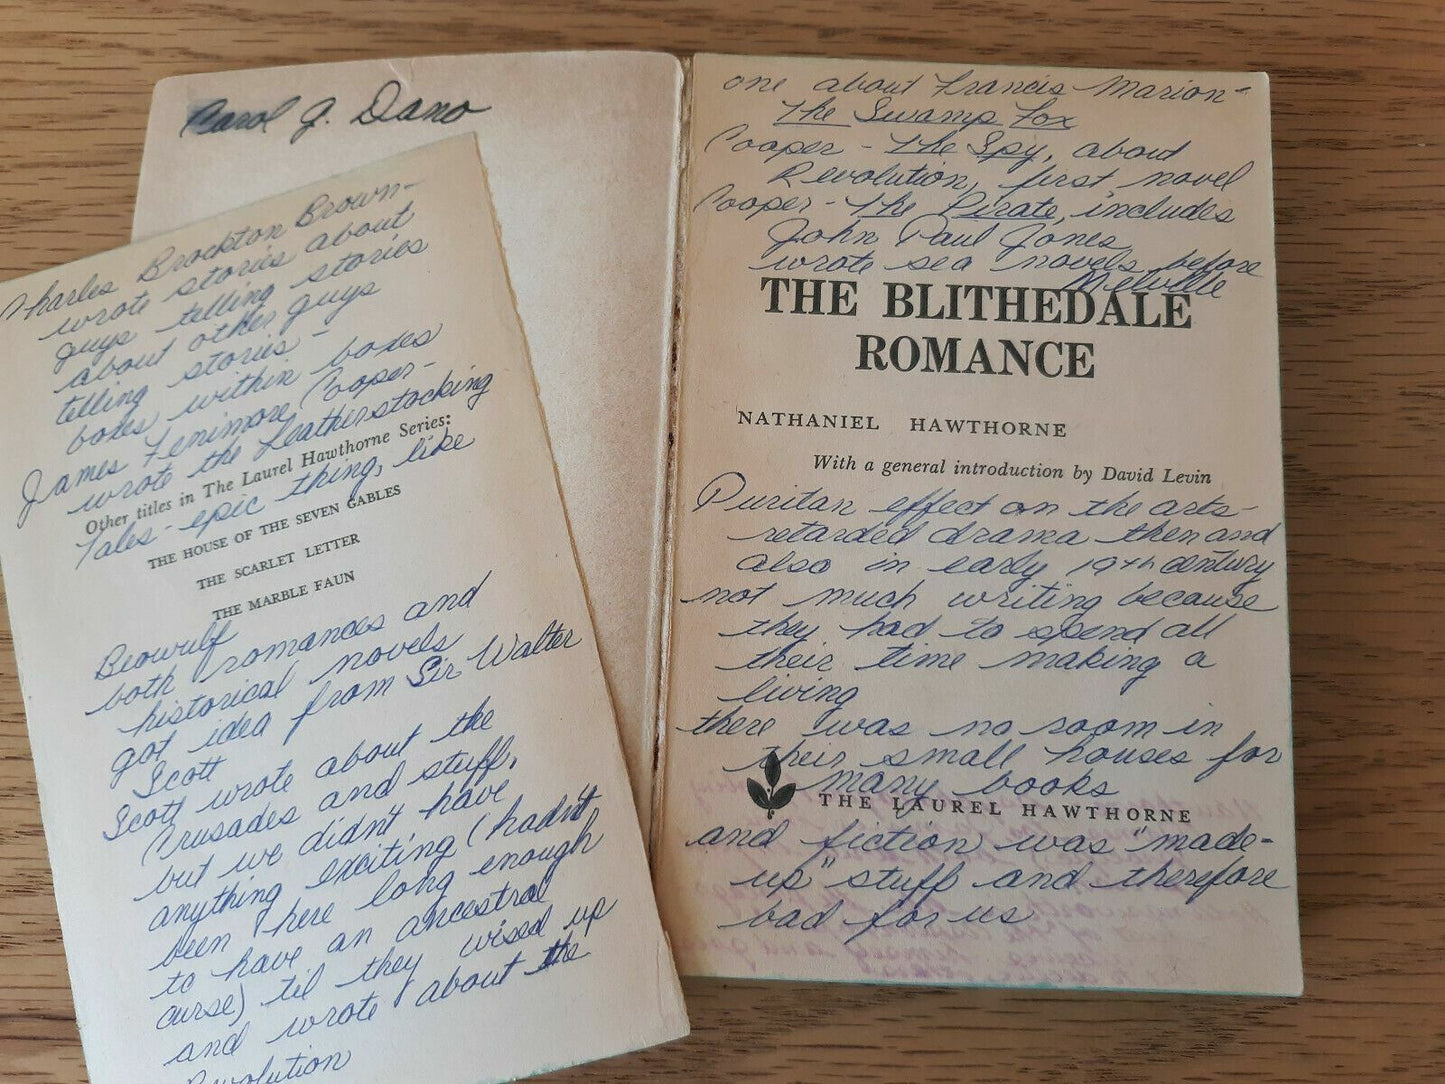 Carol J. Dano
Charles Brockton Brown-
wrote stories about
guys telling stories
about other guys
telling stories -
boxes within boxes
James Fenimore Cooper-
wrote the Leatherstocking
Other titles in The Laurel Hawthorne Series:
Tales - epic thing, like
THE HOUSE OF THE SEVEN GABLES
THE SCARLET LETTER
THE MARBLE FAUN
Beowulf
both romances and
historical novels
got idea from Sir Walter
Scott
Scott wrote about the
Crusades and stuff,
but we didn't have
anything exciting (hadn't
been here long enough
to have an ancestral
curse) til they wised up
and wrote about the
Revolution
one about Francis Marion-
The Swamp Fox
Cooper - The Spy, about
Revolution, first novel
Cooper - The Pirate, includes
John Paul Jones
wrote sea novels before
Melville
THE BLITHEDALE
ROMANCE
NATHANIEL HAWTHORNE
With a general introduction by David Levin
Puritan effect on the arts-
retarded drama then and
also in early 19th century
not much writing because
they had to spend all
their time making a
living
there was no room in
their small houses for
many books
THE LAUREL HAWTHORNE
and fiction was "made-
up" stuff and therefore
bad for us